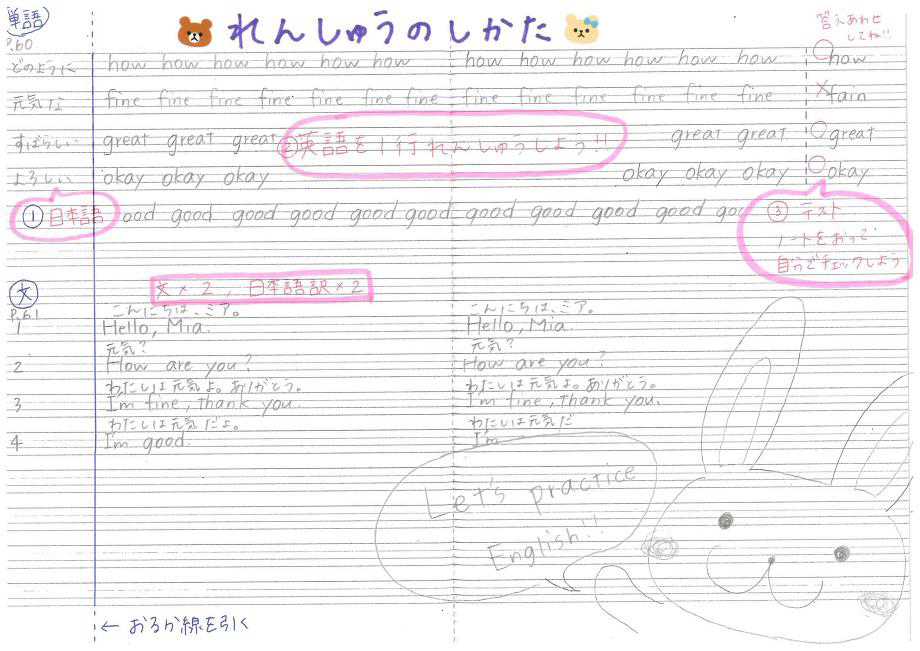 単語
れんしゅうのしかた
答えあわせ
してね!!
P.60
どのように how how how how how how how how how how how how ○how
元気な fine fine fine fine fine fine fine fine fine fine fine fine fine ×fain
すばらしい great great great ②英語を1行れんしゅうしよう!! great great ○great
よろしい okay okay okay okay okay okay ○okay
①日本語 ood good good good good good good good good good goo
③テスト
ノートをおって
自分でチェックしよう
文
文×2, 日本語訳×2
P.61
こんにちは、ミア。 こんにちは、ミア。
1 Hello, Mia. Hello, Mia.
元気? 元気?
2 How are you? How are you?
わたしは元気よ。ありがとう。 わたしは元気よ。ありがとう。
3 I'm fine, thank you. I'm fine, thank you.
わたしは元気だよ。 わたしは元気だ
4 I'm good. I'm
Let's practice
English!!
← おるか線を引く